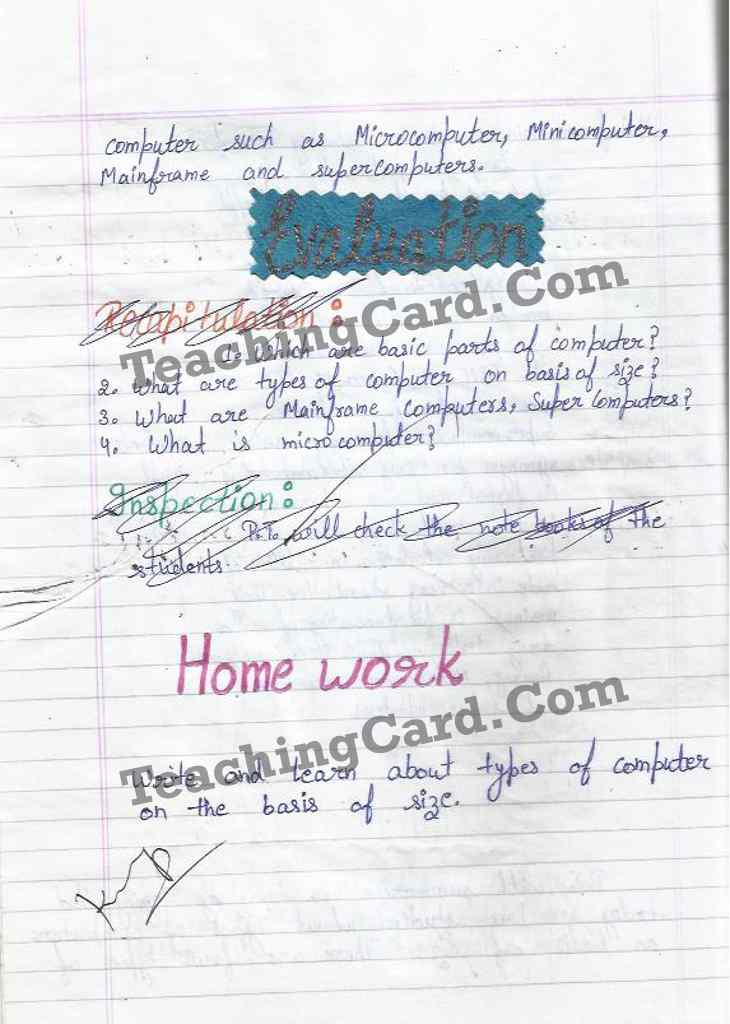 computer such as Microcomputer, Minicomputer,
Mainframe and supercomputers.
Evaluation
Recapitulation :
TeachingCard.Com
1. Which are basic parts of computer?
2. What are types of computer on basis of size?
3. What are Mainframe Computers, Super Computers?
4. What is microcomputer?
Inspection :
P.T. will check the note books of the
students.
Home work
TeachingCard.Com
Write and learn about types of computer
on the basis of size.